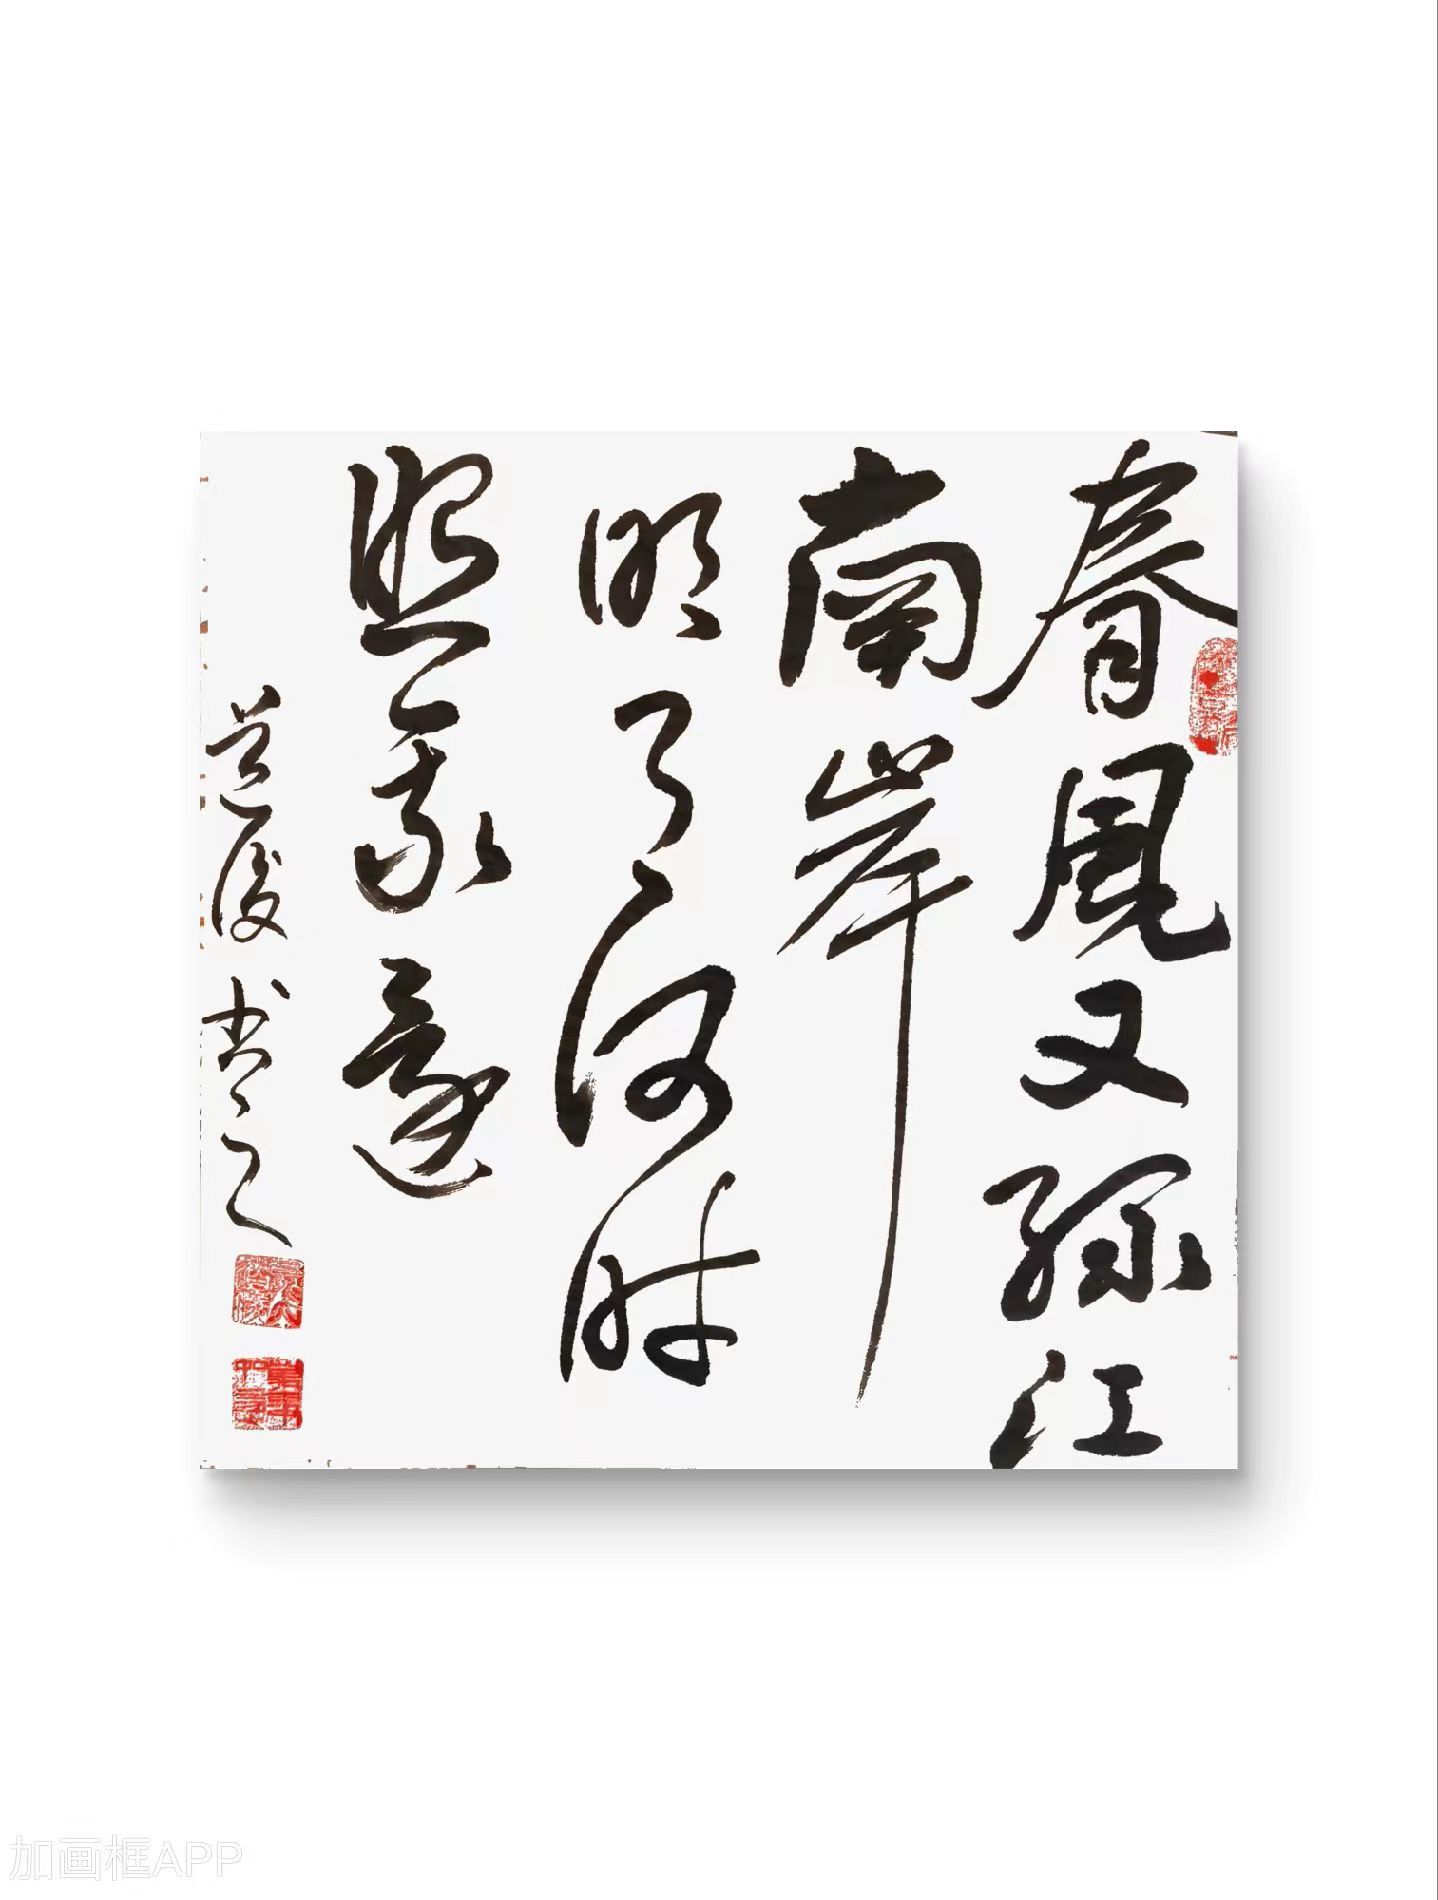 春風又緑江
南岸
明月何时
照我還
道俊书之
加画框APP